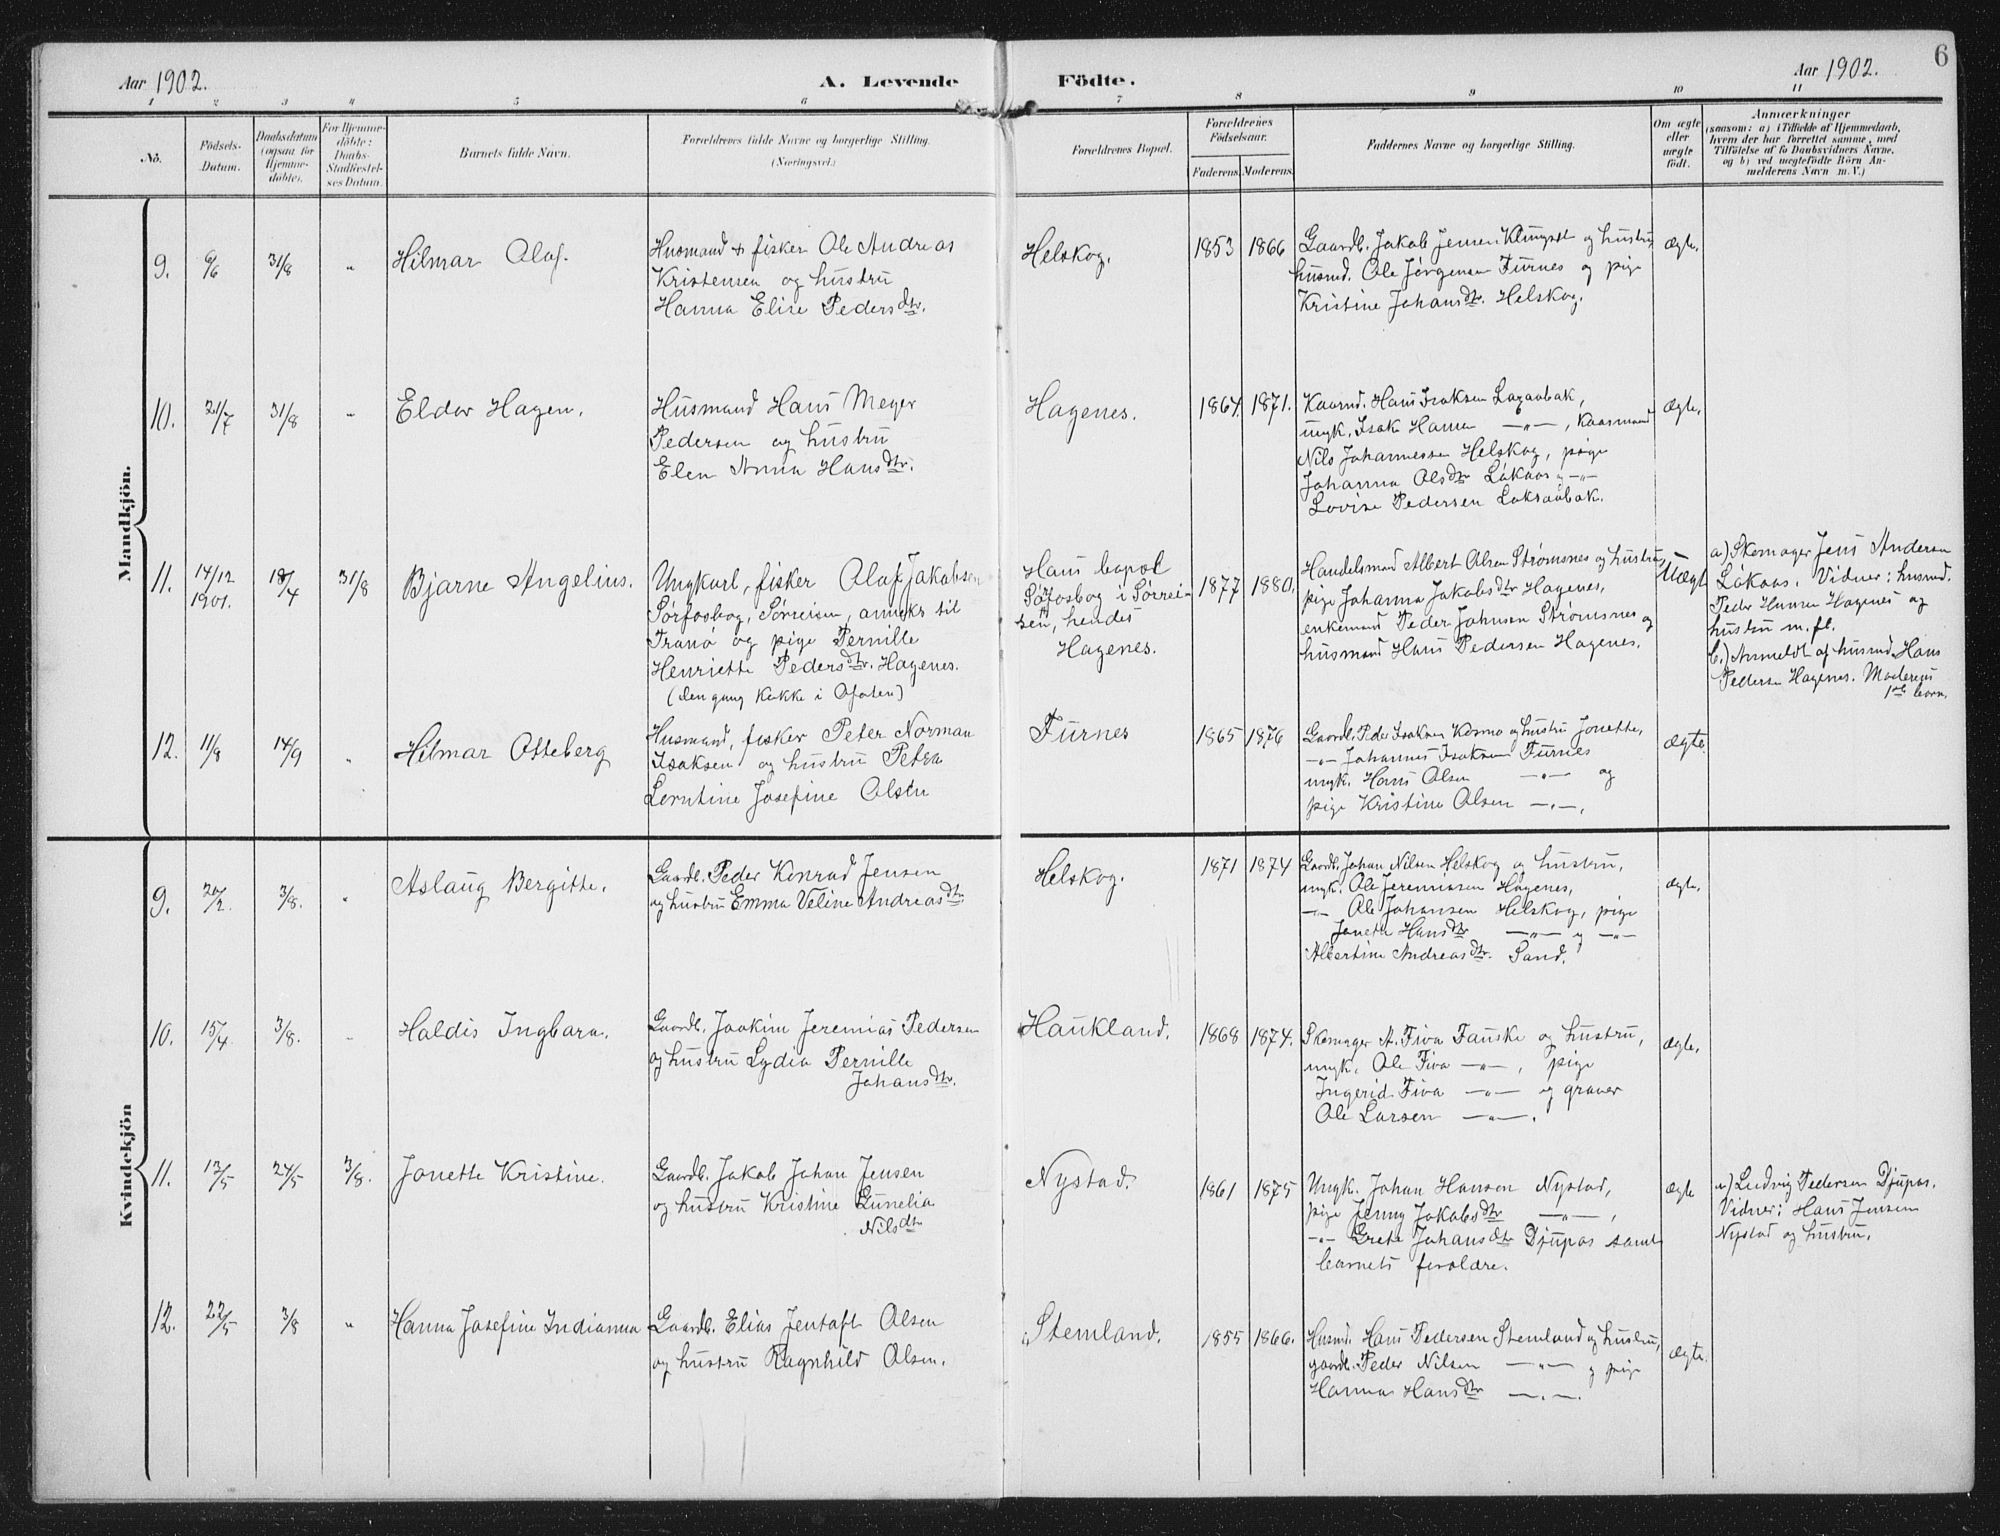 6
Aar 1902.
A. Levende Födte.
Aar 1902.
1 2 3 4 5 6 7 8 9 10 11
No.
Födsels-
Datum.
Daabsdatum
(ogsaa for
Hjemme-
döbte).
For Hjemme-
döbte:
Daabs-
Stadfæstel-
ses Datum.
Barnets fulde Navn.
Forældrenes fulde Navne og borgerlige Stilling.
(Næringsvei.)
Forældrenes Bopæl.
Forældrenes
Födselsaar.
Faderens. Moderens.
Faddernes Navne og borgerlige Stilling.
Om ægte
eller
uægte
födt.
Anmærkninger
(saasom: a) i Tilfælde af Hjemmedaab,
hvem der har forrettet samme, med
Tilföielse af to Daabsvidners Navne,
og b) ved uegtefödte Börn An-
melderens Navn m. V.)
Mandkjön.
9. 6/6 31/8 "
Hilmar Olaf.
Husmand & fisker Ole Andreas
Kristensen og hustru
Hanna Elise Pedersdtr.
Helskog.
1853 1866
Gaardb. Jakob Jensen og hustru
husmd. Ole Jørgensen Furnes og pige
Kristine Johansdtr. Helskog.
ægte.
10. 21/7 31/8 "
Eldor Hagen.
Husmand Hans Meyer
Pedersen og hustru
Elen Anna Hansdtr.
Hagenes.
1864. 1871.
Kaarmd. Hans Isaksen
ungk. Isak Hansen —"—, Kaarmand
Nils Johannessen Helskog, pige
Johanna Olsdtr Låkaas og —"—
Lovise Pedersen Laksaabak.
ægte.
11. 14/12 1901. 18/4 31/8
Bjarne Angelius.
Ungkarl, fisker Olaf Jakobsen
Sørfosbog, Sørreisen, anneks til
Tranø og pige Pernille
Henriette Pedersdtr. Hagenes.
(den gang Kokke i Ofoten)
Hans bopæl
Sørfosbog i Sørrei-
sen, hendes
Hagenes.
1877 1880.
Handelsmand Albert Olsen Strømsnes og hustru,
pige Johanna Jakobsdtr Hagenes,
enkemand Peder Johnsen Strømsnes og
husmand Hans Pedersen Hagenes.
Uægte
a) Skomager Jens Andersen
Låkaas. Vidner: husmd.
Peder Hansen Hagenes og
hustru m. fl.
b.) Anmeldt af husmd Hans
Pedersen Hagenes. Moderens
1ste barn.
12. 11/8 14/9 "
Hilmar Otteberg
Husmand, fisker Peter Norman
Isaksen og hustru Petra
Lorntine Josefine Olsen
Furnes
1865 1876
Gaardb. Peder Isaksen Kosmo og hustru Jonette,
—"— Johannes Isaksen Furnes
ungk. Hans Olsen —"— og
pige Kristine Olsen —"—.
ægte.
Kvindekjön
9. 20/2. 3/8. "
Aslaug Bergitte.
Gaardb. Peder Konrad Jensen
og hustru Emma Veline Andreasdtr.
Helskog.
1871 1874
Gaardb. Johan Nilsen Helskog og hustru,
ungk. Ole Jeremiasen Hagenes,
—"— Ole Johansen Helskog, pige
Joneta Hansdtr —"— og —"—
Albertine Andreasdtr. Sand.
ægte.
10. 15/4 3/8. "
Haldis Ingbara.
Gaardb. Joakim Jeremias Pedersen
og hustru Lydia Pernille
Johansdtr.
Haukland.
1868 1874.
Skomager A. Fiva Fauske og hustru,
ungk. Ole Fiva —"—, pige
Ingerid Fiva —"— og graver
Ole Larsen —"—.
ægte.
11. 13/5 24/5 3/8.
Jonette Kristine.
Gaardb. Jakob Johan Jensen
og hustru Kristine Gunelia
Nilsdtr
Nystad.
1861 1875
Ungk. Johan Hansen Nystad,
pige Jenny Jakobsdtr —"—,
—"— Grete Johansdtr Djupos samt
barnets forældre.
ægte
a) Ludvig Pedersen Djupos.
Vidner: Hans Jensen
Nystad og hustru.
12. 22/5 3/8 "
Hanna Josefine Indianna
Gaardb. Elias Jentoft Olsen
og hustru Ragnhild Olsen.
Stemland.
1855 1866.
Husmd. Hans Pedersen Stemland og hustru,
gaardb. Peder Nilsen —"— og pige
Hanna Hansdtr —"—.
ægte.